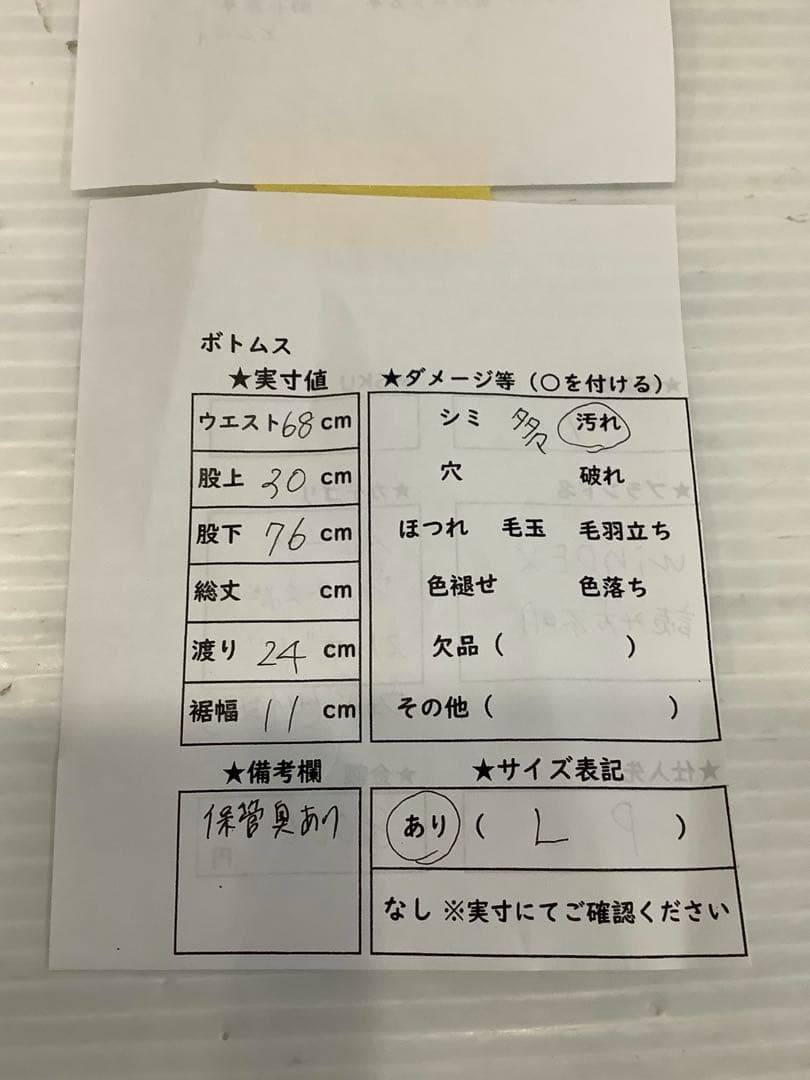 ボトムス
★実寸値
ウエスト 68 cm
股上 30 cm
股下 76 cm
総丈 cm
渡り 24 cm
裾幅 11 cm
★ダメージ等（○を付ける）
シミ 多々 汚れ
穴 破れ
ほつれ 毛玉 毛羽立ち
色褪せ 色落ち
欠品（ ）
その他（ ）
★備考欄
保管臭あり
★サイズ表記
あり（ L ）
なし ※実寸にてご確認ください